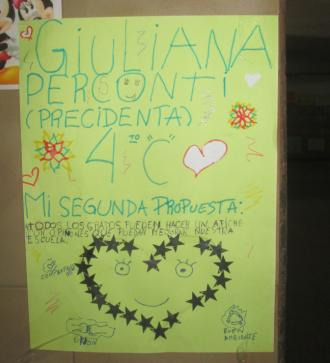 GIULIANA
PERCONTI
(PRECIDENTA)
4 to "C"
MI SEGUNDA PROPUESTA:
TODOS LOS GRADOS PUEDEN HACER UN AFICHE
POR OPINIONES QUE PUEDAN MEJORAR NUESTRA
ESCUELA.
COMPAÑERISMO
UNIÓN
BUEN
AMBIENTE